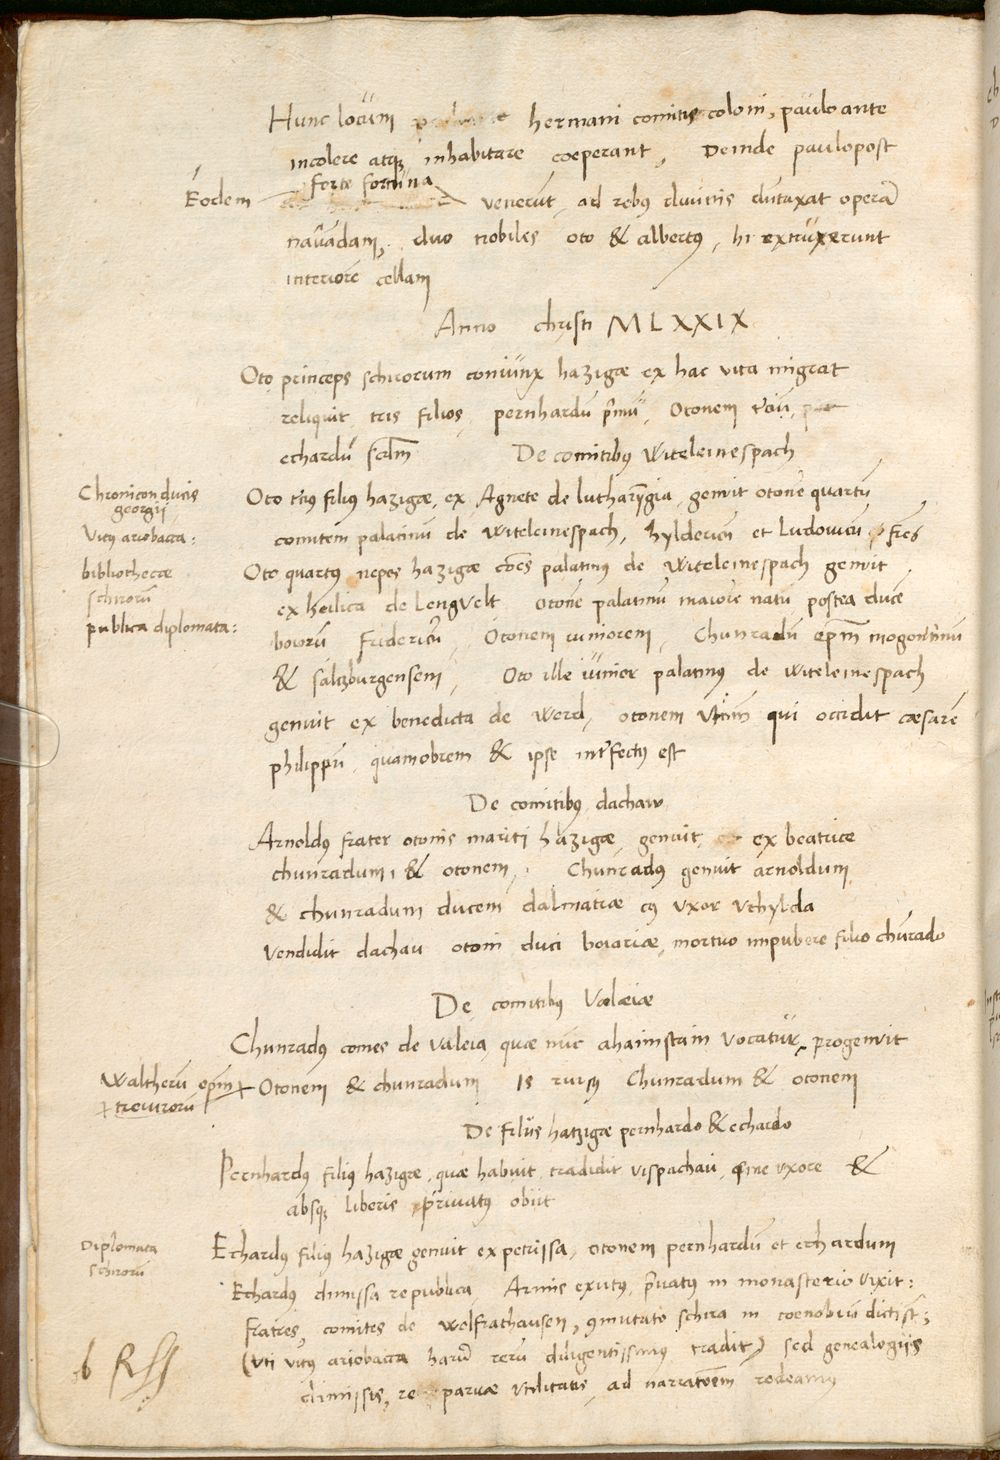 Hunc locum hermani comitis coloni, paulo ante
incolere atq; inhabitare coeperant, Deinde paulopost
forte fortuna
Eodem venerut, ad rebus divinis dutaxat opera
navadam, duo nobiles oto & albertus, hi extruxerunt
interiore cellam
Anno christi MLXXIX
Oto princeps schirorum coniunx hazigæ ex hac vita migrat
reliquit tris filios, pernhardu p̄mu, Otonem
echardu De comitibus Witeleinespach
Chronicon ducis
georgii
Vitus ariobacca:
bibliothecæ
schiroru
publica diplomata:
Oto filius hazigæ, ex Agnete de genvit otone quartu
comitem palatinu de Witeleinespach, hyldericu et Ludovicu fr̄es
Oto quartus nepos hazigæ palatinus de Witeleinespach genvit
ex heilica de Lengvelt Otone palatinu maiore natu postea duce
boioru Fridericu, Otonem iuniorem, Chunradu ep̄m mogontinu
& saltzburgensem, Oto ille iunior palatinus de Witeleinespach
genuit ex benedicta de Werd, otonem qui occidit cæsare
philippu, quamobrem & ipse int'fectus est
De comitibus dachaw
Arnoldus frater otonis mariti hazigæ, genuit ex beatrice
chunradum, & otonem, Chunradus genuit arnoldum
& chunradum ducem dalmatiæ cus uxor Vthylda
Vendidit dachau otoni duci boiariæ, mortuo impubere filio chunrado
De comitibus Valæiæ
Chunradus comes de Valeia, quæ nuc ahaimstain vocatur, progenvit
Waltheru ep̄m
treuiroru
Otonem & chunradum is rursus Chunradum & otonem
De filiis hatzigæ pernhardo & echardo
Pernhardus filius hazigæ, quæ habuit tradidit vispachau, sine uxore &
absq; liberis privatus obiit
Diplomata
schiroru
Echardus filius hazigæ genuit ex petrissa, otonem pernhardu et echardum
Echardus dimissa republica Armis exutus, p̄vatus in monasterio vixit:
Fratres, comites de Wolfrathausen, 9mutato schira in coenobiu
(Vti vitus ariobacca haru reru diligentissimus tradit) sed genealogiis
dimissis, re parvæ utilitatis, ad narratōem redeamus